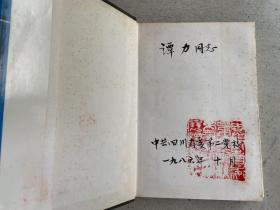 谭力同志
中共四川省委第二党校
一九八六年十月